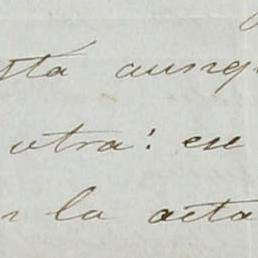 sta aunq
otra: en
la acta